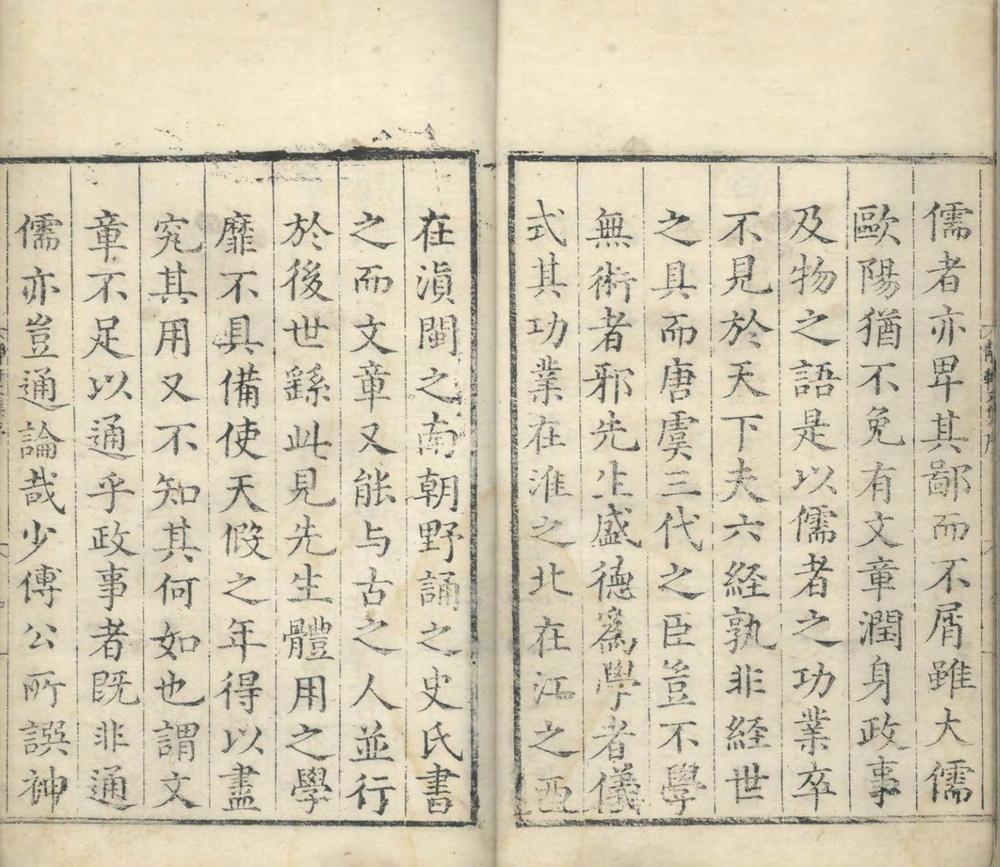 儒者亦卑其鄙而不屑雖大儒
歐陽猶不免有文章潤身政事
及物之語是以儒者之功業卒
不見於天下夫六経孰非経世
之具而唐虞三代之臣豈不學
無術者邪先生盛德爲學者儀
式其功業在淮之北在江之西
在滇閩之南朝野誦之史氏書
之而文章又能与古之人並行
於後世繇此見先生體用之學
靡不具備使天假之年得以盡
究其用又不知其何如也謂文
章不足以通乎政事者既非通
儒亦豈通論哉少傅公所譔神